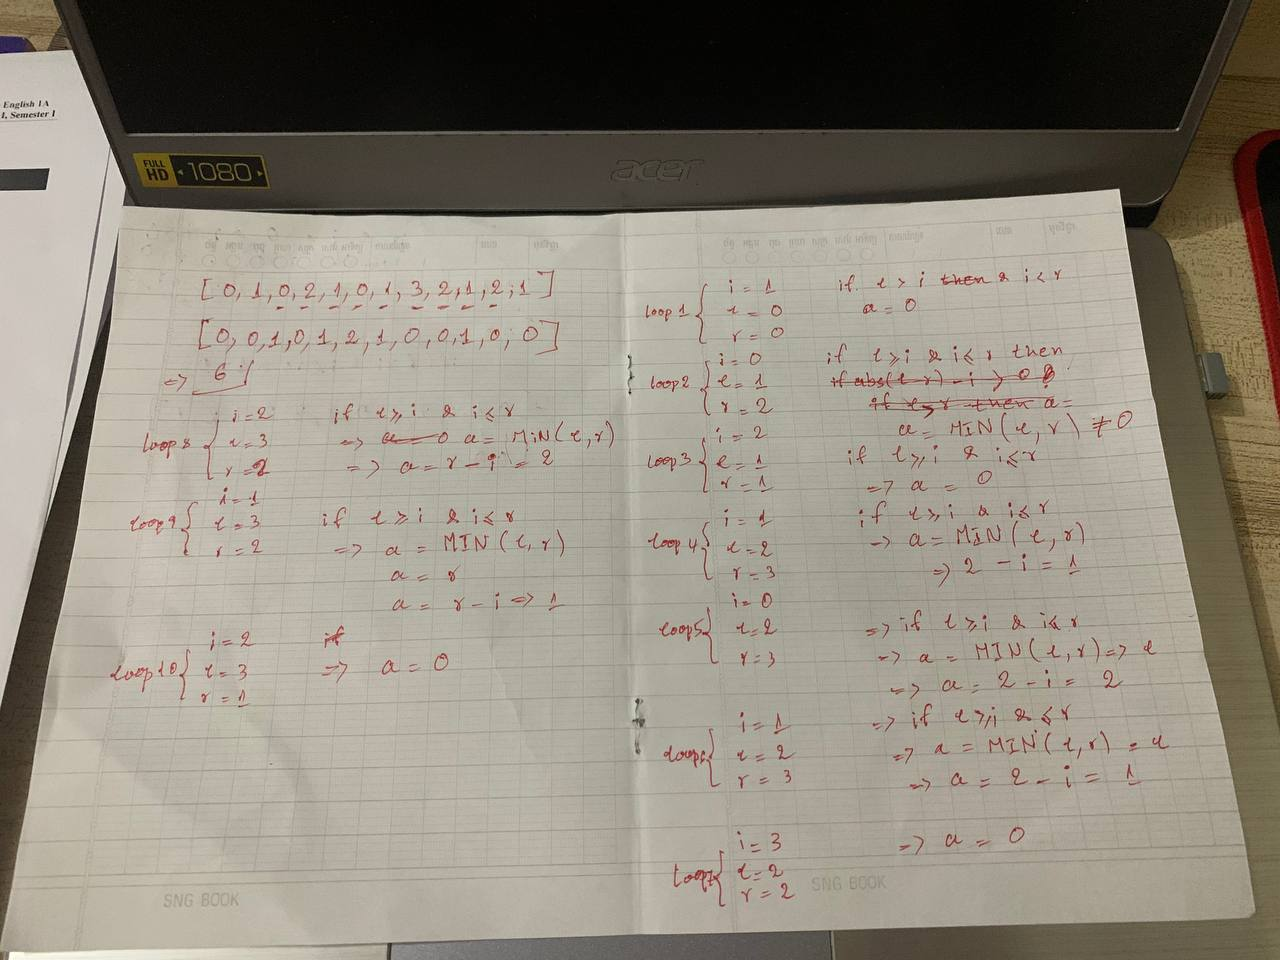 English 1A
I, Semester I
FULL HD 1080
acer
[0, 1, 0, 2, 1, 0, 1, 3, 2, 1, 2, 1]
[0, 0, 1, 0, 1, 2, 1, 0, 0, 1, 0, 0]
=> 6
loop 8 { i = 2
l = 3
r = 2
if l ≥ i & i ≤ r
=> a = 0 a = MIN(l, r)
=> a = r - i = 2
loop 9 { i = 1
l = 3
r = 2
if l ≥ i & i ≤ r
=> a = MIN(l, r)
a = r
a = r - i => 1
loop 10 { i = 2
l = 3
r = 1
if
=> a = 0
SNG BOOK
loop 1 { i = 1
l = 0
r = 0
if l > i then & i < r
a = 0
loop 2 { i = 0
l = 1
r = 2
if l ≥ i & i ≤ r then
if abs(l - r) - i > 0 &
if l > r then a =
a = MIN(l, r) ≠ 0
loop 3 { i = 2
l = 1
r = 1
if l ≥ i & i ≤ r
=> a = 0
loop 4 { i = 1
l = 2
r = 3
if l ≥ i & i ≤ r
=> a = MIN(l, r)
=> 2 - i = 1
loop 5 { i = 0
l = 2
r = 3
=> if l ≥ i & i ≤ r
=> a = MIN(l, r) => l
=> a = 2 - i = 2
loop 6 { i = 1
l = 2
r = 3
=> if l ≥ i & ≤ r
=> a = MIN(l, r) = l
=> a = 2 - i = 1
loop 7 { i = 3
l = 2
r = 2
=> a = 0
SNG BOOK